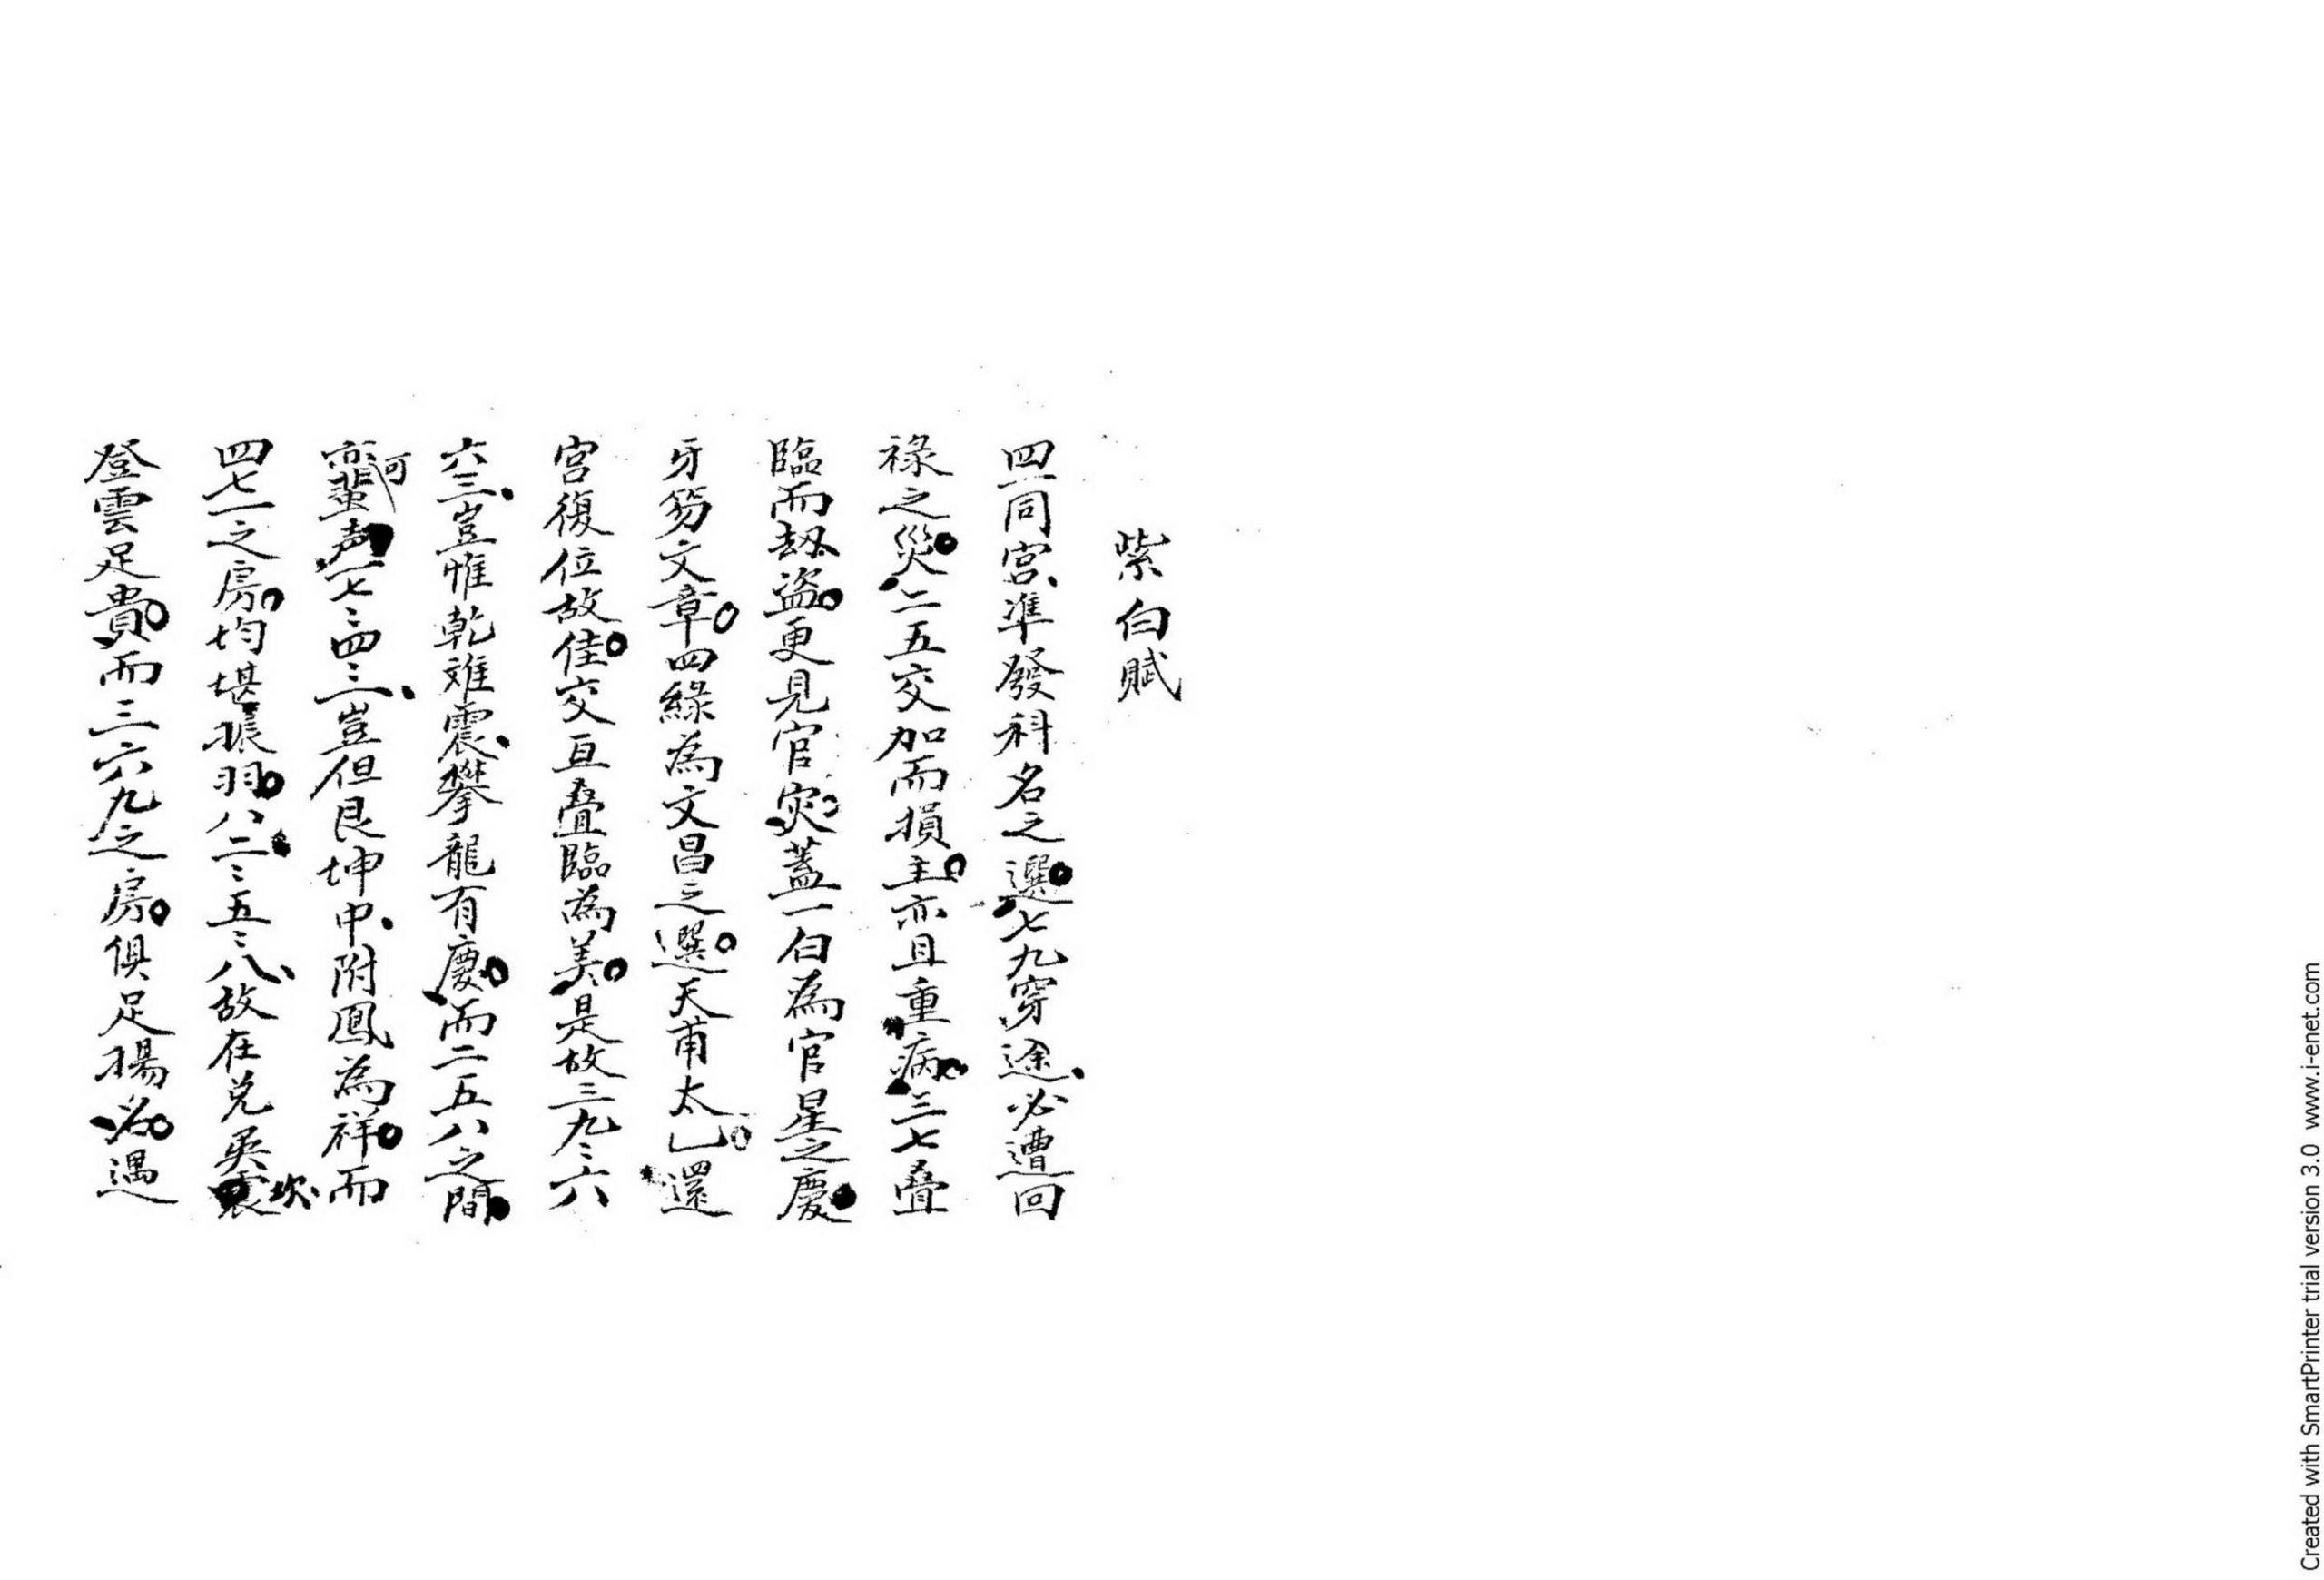 紫白賦
四一同宮、準發科名之選。七九穿途、必遭回
祿之災。二五交加而損主。亦且重病。三七叠
臨而劫盜。更見官灾。蓋一白為官星之慶。
牙笏文章。四綠為文昌之選。天甫太乙。還
宮復位故佳。交亘叠臨為美。是故三九、九六、
六三、豈惟乾难震、攀龍有慶。而二五八之間。
可蜚声。一七、七四、四一、豈但艮坤中、附鳳為祥。而
四七一之房。均堪振羽。八二、二五、五八、故在兌巽坎、
登雲足貴。而三六九之房。俱足揚名。遇
Created with SmartPrinter trial version 3.0 www.i-enet.com